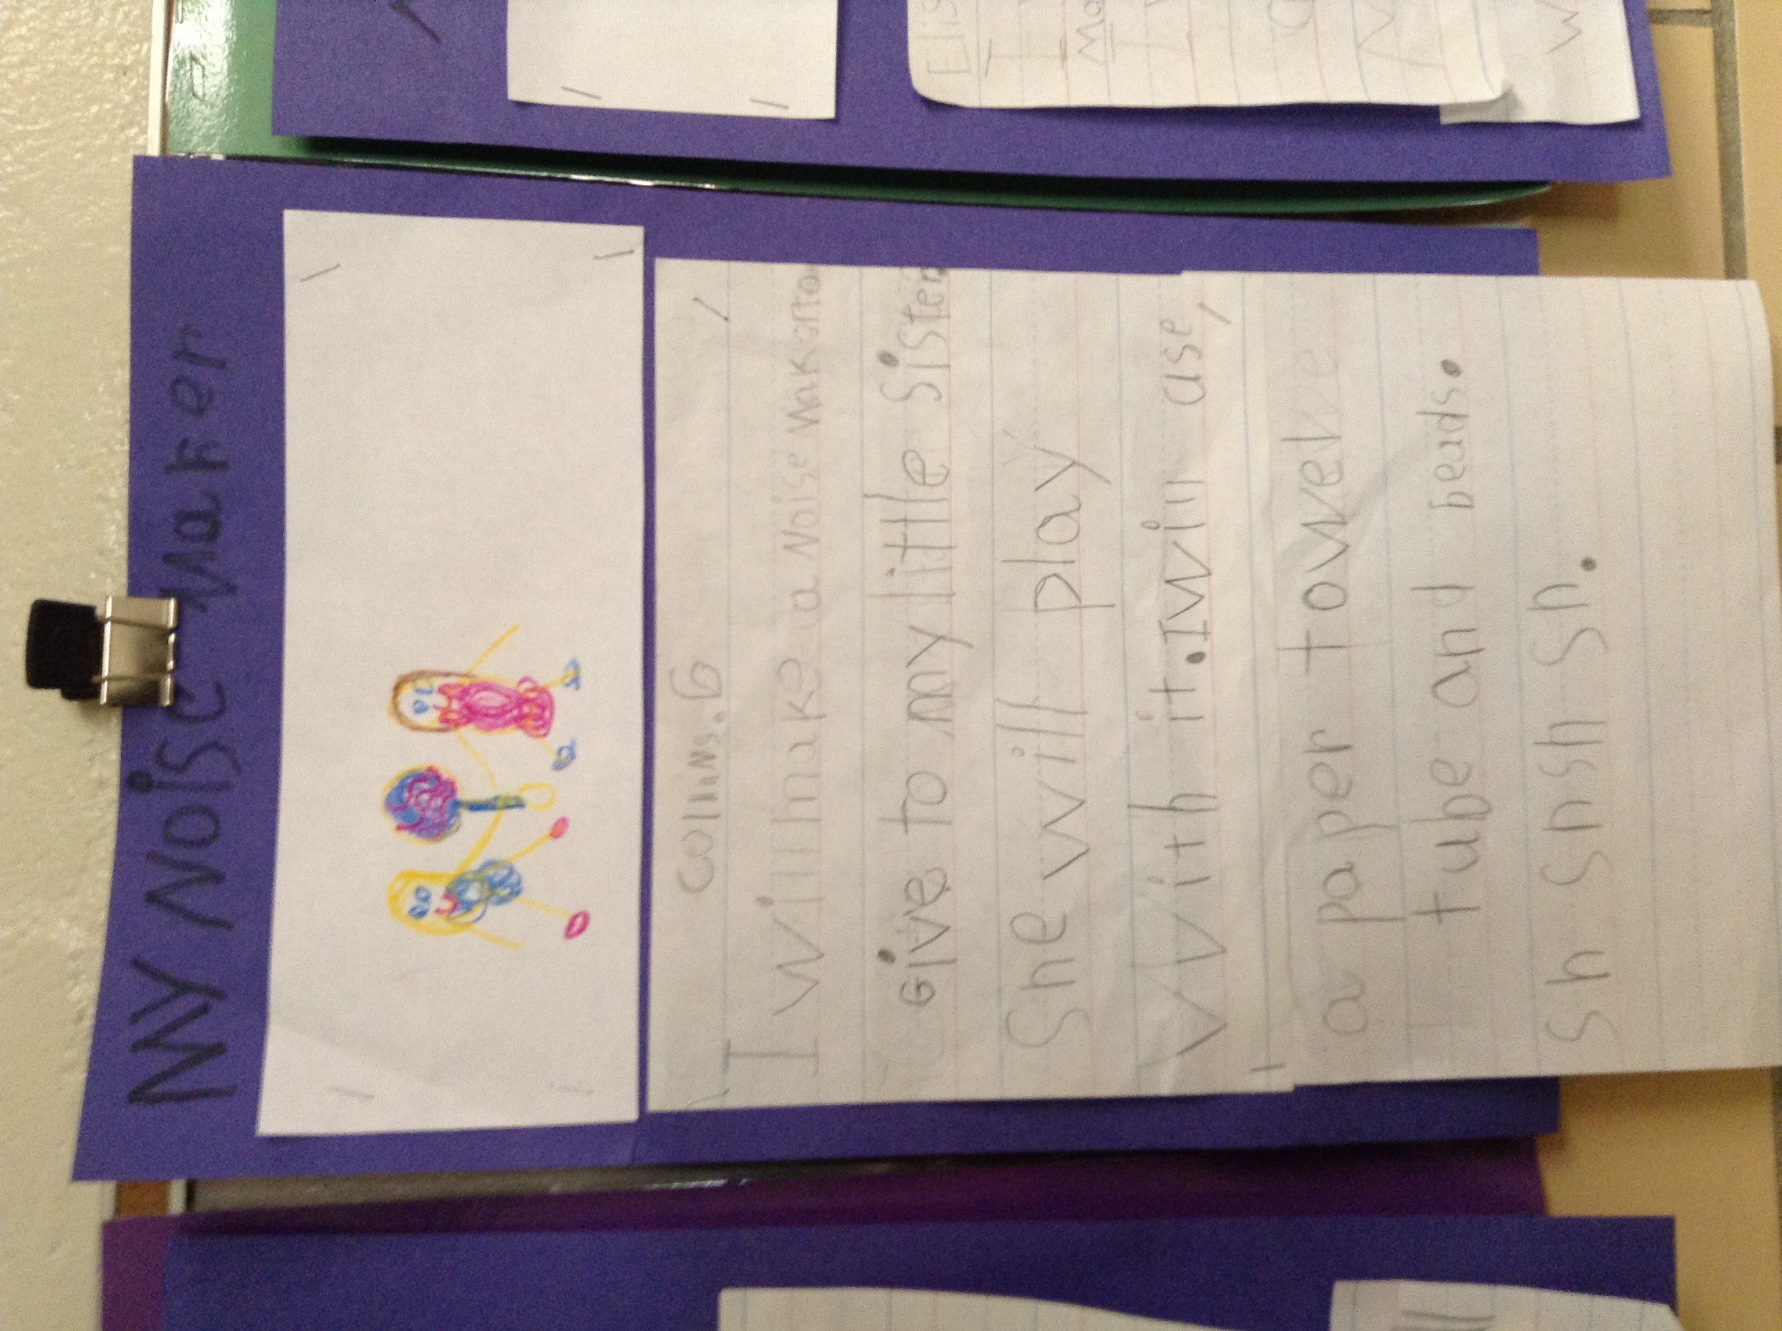 MY Noise Maker
Collins.G
I will make a Noise Maker to
Give to my little sister
She will play
With it. I will use
a paper towel
tube and beads.
Sh Sh Sh Sh.
Elis